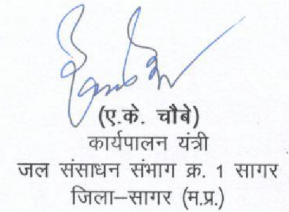 (ए.के. चौबे)
कार्यपालन यंत्री
जल संसाधन संभाग क्र. 1 सागर
जिला–सागर (म.प्र.)